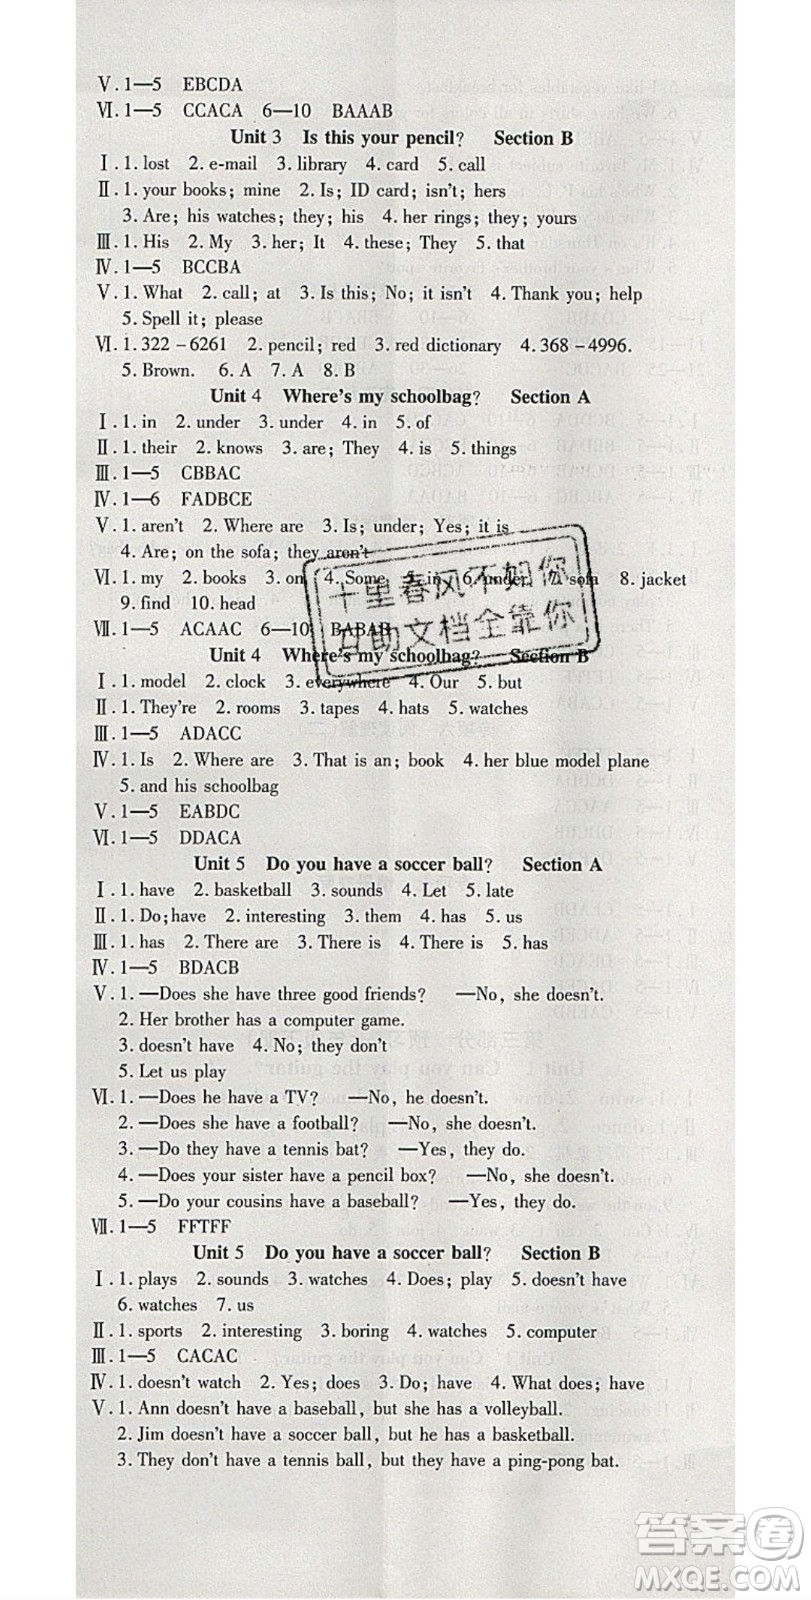 Ⅴ. 1—5 EBCDA
Ⅵ. 1—5 CCACA 6—10 BAAAB
Unit 3 Is this your pencil? Section B
Ⅰ. 1. lost 2. e-mail 3. library 4. card 5. call
Ⅱ. 1. your books; mine 2. Is; ID card; isn't; hers
3. Are; his watches; they; his 4. her rings; they; yours
Ⅲ. 1. His 2. My 3. her; It 4. these; They 5. that
Ⅳ. 1—5 BCCBA
Ⅴ. 1. What 2. call; at 3. Is this; No; it isn't 4. Thank you; help
5. Spell it; please
Ⅵ. 1. 322-6261 2. pencil; red 3. red dictionary 4. 368-4996.
5. Brown. 6. A 7. A 8. B
Unit 4 Where's my schoolbag? Section A
Ⅰ. 1. in 2. under 3. under 4. in 5. of
Ⅱ. 1. their 2. knows 3. are; They 4. is 5. things
Ⅲ. 1—5 CBBAC
Ⅳ. 1—6 FADBCE
Ⅴ. 1. aren't 2. Where are 3. Is; under; Yes; it is
4. Are; on the sofa; they aren't
Ⅵ. 1. my 2. books 3. on 4. Some 5. in 6. under 7. sofa 8. jacket
9. find 10. head
Ⅶ. 1—5 ACAAC 6—10 BABAB
千里春风不如你
互助文档全靠你
Unit 4 Where's my schoolbag? Section B
Ⅰ. 1. model 2. clock 3. everywhere 4. Our 5. but
Ⅱ. 1. They're 2. rooms 3. tapes 4. hats 5. watches
Ⅲ. 1—5 ADACC
Ⅳ. 1. Is 2. Where are 3. That is an; book 4. her blue model plane
5. and his schoolbag
Ⅴ. 1—5 EABDC
Ⅵ. 1—5 DDACA
Unit 5 Do you have a soccer ball? Section A
Ⅰ. 1. have 2. basketball 3. sounds 4. Let 5. late
Ⅱ. 1. Do;have 2. interesting 3. them 4. has 5. us
Ⅲ. 1. has 2. There are 3. There is 4. There is 5. has
Ⅳ. 1—5 BDACB
Ⅴ. 1. —Does she have three good friends? —No, she doesn't.
2. Her brother has a computer game.
3. doesn't have 4. No; they don't
5. Let us play
Ⅵ. 1. —Does he have a TV? —No, he doesn't.
2. —Does she have a football? —No, she doesn't.
3. —Do they have a tennis bat? —Yes, they do.
4. —Does your sister have a pencil box? —No, she doesn't.
5. —Do your cousins have a baseball? —Yes, they do.
Ⅶ. 1—5 FFTFF
Unit 5 Do you have a soccer ball? Section B
Ⅰ. 1. plays 2. sounds 3. watches 4. Does; play 5. doesn't have
6. watches 7. us
Ⅱ. 1. sports 2. interesting 3. boring 4. watches 5. computer
Ⅲ. 1—5 CACAC
Ⅳ. 1. doesn't watch 2. Yes; does 3. Do; have 4. What does; have
Ⅴ. 1. Ann doesn't have a baseball, but she has a volleyball.
2. Jim doesn't have a soccer ball, but he has a basketball.
3. They don't have a tennis ball, but they have a ping-pong bat.
答案圈
MXQE.COM